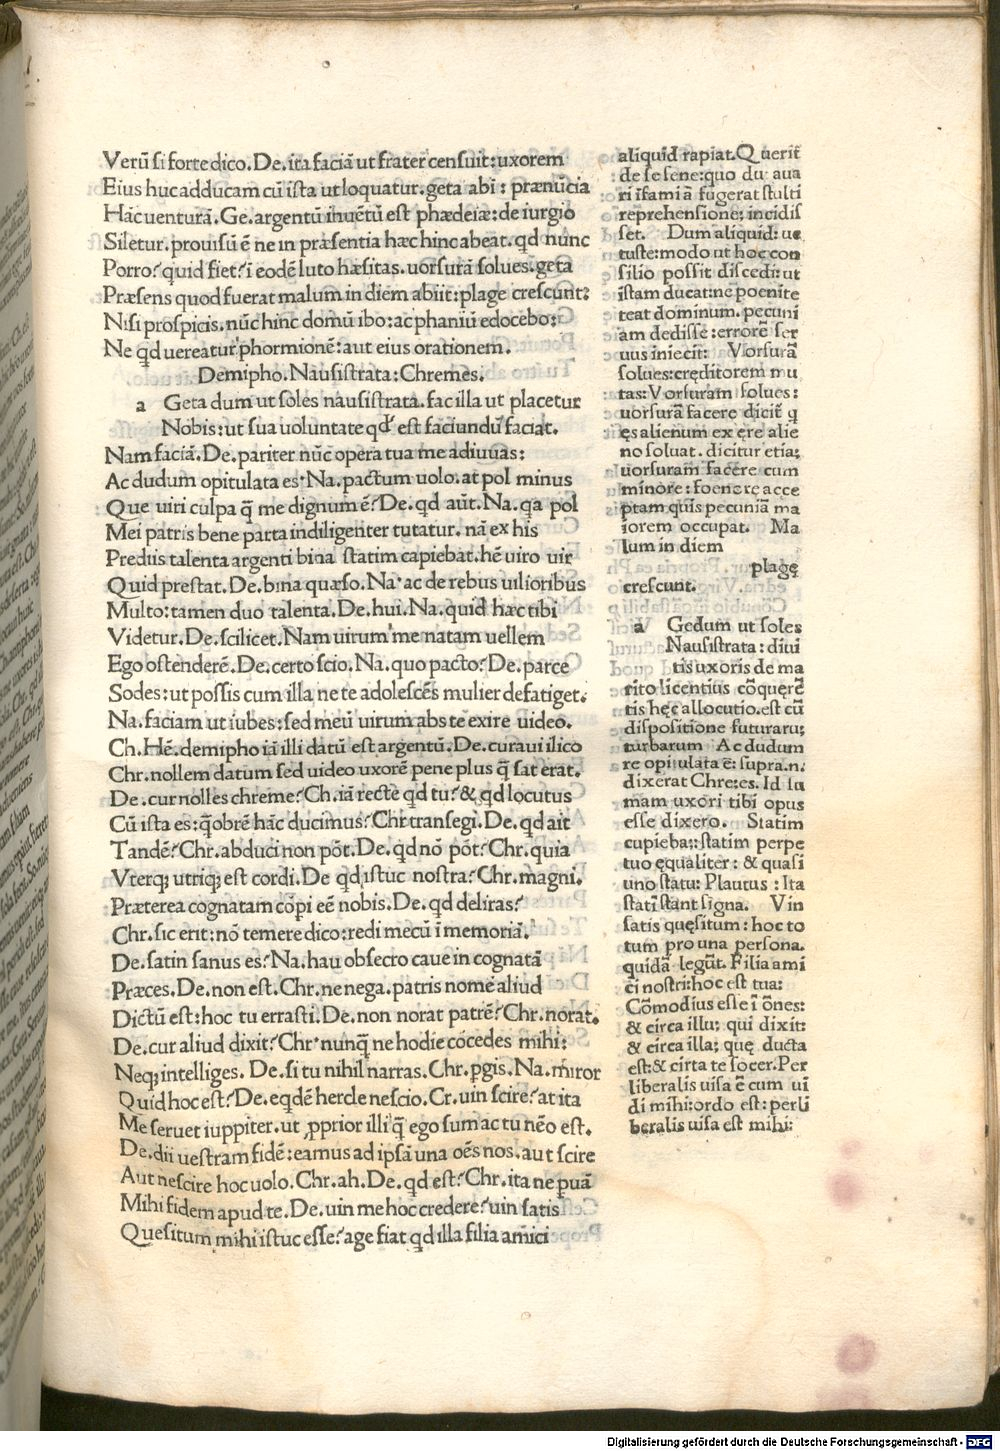 Verū si forte dico. De. ita faciā ut frater censuit: uxorem
Eius huc adducam cū ista ut loquatur. geta abi : prænūcia
Hāc uenturā. Ge. argentū inuētū est phædeiæ: de iurgio
Siletur. prouisū ē ne in præsentia hæc hinc abeat. qd nunc
Porro? quid fiet? i eodē luto hæsitas. uorsurā solues. geta
Præsens quod fuerat malum in diem abiit: plage crescunt:
Nisi prospicis. nūc hinc domū ibo: ac phaniū edocebo:
Ne qd uereatur phormionē: aut eius orationem.
Demipho. Nausistrata: Chremes.
a Geta dum ut soles nausistrata. fac illa ut placetur
Nobis: ut sua uoluntate qd est faciundū faciat.
Nam faciā. De. pariter nūc opera tua me adiuuas:
Ac dudum opitulata es. Na. pactum uolo. at pol minus
Que uiri culpa q̄ me dignum ē? De. qd aūt. Na. qa pol
Mei patris bene parta indiligenter tutatur. nā ex his
Prediis talenta argenti bina statim capiebat. hē uiro uir
Quid prestat. De. bina quæso. Na. ac de rebus uilioribus
Multo: tamen duo talenta. De. hui. Na. quid hæc tibi
Videtur. De. scilicet. Nam uirum me natam uellem
Ego ostenderē. De. certo scio. Na. quo pacto? De. parce
Sodes: ut possis cum illa ne te adolescēs mulier defatiget.
Na. faciam ut iubes: sed meū uirum abs te exire uideo.
Ch. Hē. demipho iā illi datū est argentū. De. curaui ilico
Chr. nollem datum sed uideo uxorē pene plus q̄ sat erat.
De. cur nolles chreme? Ch. iā recte qd tu? & qd locutus
Cū ista es: q̄obrē hāc ducimus? Chr transegi. De. qd ait
Tandē? Chr. abduci non pōt. De. qd nō pōt? Chr. quia
Vterqꝫ utriqꝫ est cordi. De qd istuc nostra? Chr. magni.
Præterea cognatam cōpi eē nobis. De. qd deliras?
Chr. sic erit: nō temere dico: redi mecū i memoriā.
De. satin sanus es? Na. hau obsecro caue in cognatā
Præces. De. non est. Chr. ne nega. patris nomē aliud
Dictū est: hoc tu errasti. De. non norat patrē? Chr. norat.
De. cur aliud dixit? Chr. nunq̄ ne hodie cōcedes mihi:
Neqꝫ intelliges. De. si tu nihil narras. Chr. ꝑgis. Na. miror
Quid hoc est? De. eqdē hercle nescio. Cr. uin scire? at ita
Me seruet iuppiter. ut ꝓprior illi q̄ ego sum ac tu nēo est.
De. dii uestram fidē: eamus ad ipsā una oēs nos. aut scire
Aut nescire hoc uolo. Chr. ah. De. qd est? Chr. ita ne puā
Mihi fidem apud te. De. uin me hoc credere? uin satis
Quesitum mihi istuc esse? age fiat qd illa filia amici
aliquid rapiat. Querit
de se sene: quo du aua
ri ifamiā fugerat stulti
reprehensione; incidis
set. Dum aliquid: ue
tuste: modo ut hoc con
silio possit discedi: ut
istam ducat: ne poenite
teat dominum. pecuni
am dedisse: errorē ser
uus iniecit: Vorsurā
solues: creditorem mu
tas: Vorsuram solues:
uorsurā facere dicit q
ęs alienum ex ęre alie
no soluat. dicitur etia;
uorsuram facere cum
minore: foenere acce
ptam quis pecuniā ma
iorem occupat. Ma
lum in diem
plagę
crescunt.
a Gedum ut soles
Nausistrata: diui
tis uxoris de ma
rito licentius cōquerē
tis hęc allocutio. est cū
dispositione futuraru;
turbarum Ac dudum
re opitulata ē: supra. n.
dixerat Chre:es. Id lu
mam uxori tibi opus
esse dixero. Statim
cupieba;: statim perpe
tuo ęqualiter: & quasi
uno statu: Plautus : Ita
stati stant signa. Vin
satis quęsitum: hoc to
tum pro una persona.
quidā legūt. Filia ami
ci nostri: hoc est tua:
Cōmodius esse i ōnes:
& circa illu; qui dixit:
& circa illa; quę ducta
est: & cirta te socer. Per
liberalis uisa ē cum ui
di mihi: ordo est: perli
beralis uisa est mihi:
Digitalisierung gefördert durch die Deutsche Forschungsgemeinschaft - DFG